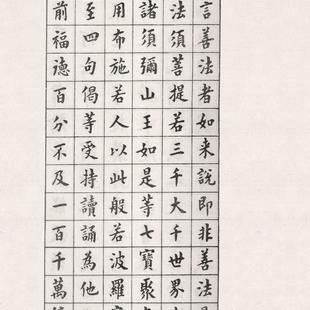 言善法者如来說即非善法
法須菩提若三千大千世界
諸須彌山王如是等七寶聚
用布施若人以此般若波羅
至四句偈等受持讀誦為他
前福德百分不及一百千萬